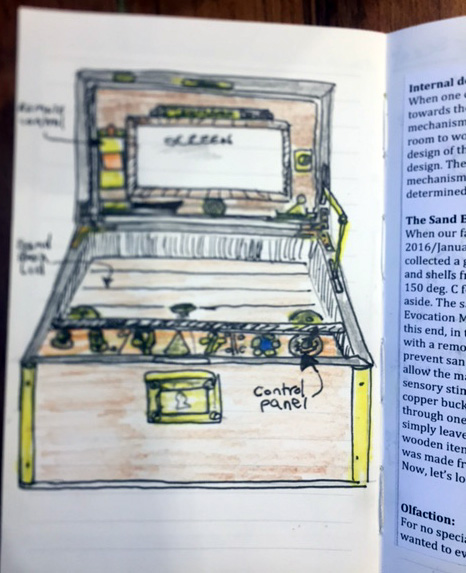 Remote
control
SCREEN
Sand
Box
Lid
control
panel
Internal de
When one o
towards th
mechanism
room to wo
design of th
design. The
mechanism
determined
The Sand E
When our fa
2016/Janua
collected a g
and shells fr
150 deg. C f
aside. The s
Evocation M
this end, in t
with a remo
prevent san
allow the m
sensory stin
copper buck
through one
simply leave
wooden iten
was made fr
Now, let's lo
Olfaction:
For no specia
wanted to ev